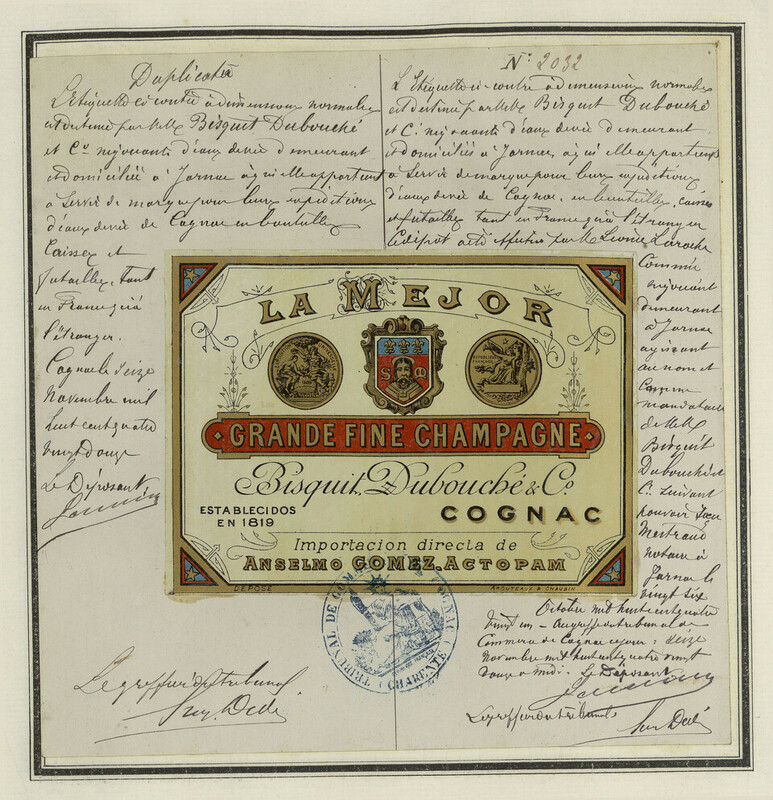 Duplicata
L'étiquette ci-contre à dimensions normales
est destinée par MM. Bisquit Dubouché
et Cie négociants d'eaux de vie demeurant
et domiciliés à Jarnac à qui elle appartient
à servir de marque pour leurs expéditions
d'eaux de vie de Cognac en bouteilles
Caisses et
futailles tant
en France qu'à
l'étranger.
Cognac le seize
Novembre mil
huit cent quatre
vingt douze
Le Déposant
Le greffier du tribunal
No 2032
L'étiquette ci-contre à dimensions normales
est destinée par MM. Bisquit Dubouché
et Cie négociants d'eaux de vie demeurant
et domiciliés à Jarnac, à qui elle appartient
à servir de marque pour leurs expéditions
d'eaux de vie de Cognac, en bouteilles, caisses
et futailles tant en France qu'à l'étranger
Le dépôt a été effectué par M. Laroche
Commis
négociant
demeurant
à Jarnac
agissant
au nom et
comme
mandataire
de MM.
Bisquit
Dubouché et
Cie suivant
pouvoir
notaire à
Jarnac le
vingt six
Octobre mil huit cent quatre
vingt un - Au greffe du tribunal de
Commerce de Cognac ce jour : seize
Novembre mil huit cent quatre vingt
douze à midi. Le Déposant
Le greffier du tribunal
LA MEJOR
GRANDE FINE CHAMPAGNE
Bisquit, Dubouché & Co.
ESTABLECIDOS
EN 1819
COGNAC
Importacion directa de
ANSELMO GOMEZ. ACTOPAM
DÉPOSÉ
TRIBUNAL DE COMMERCE COGNAC
(CHARENTE)